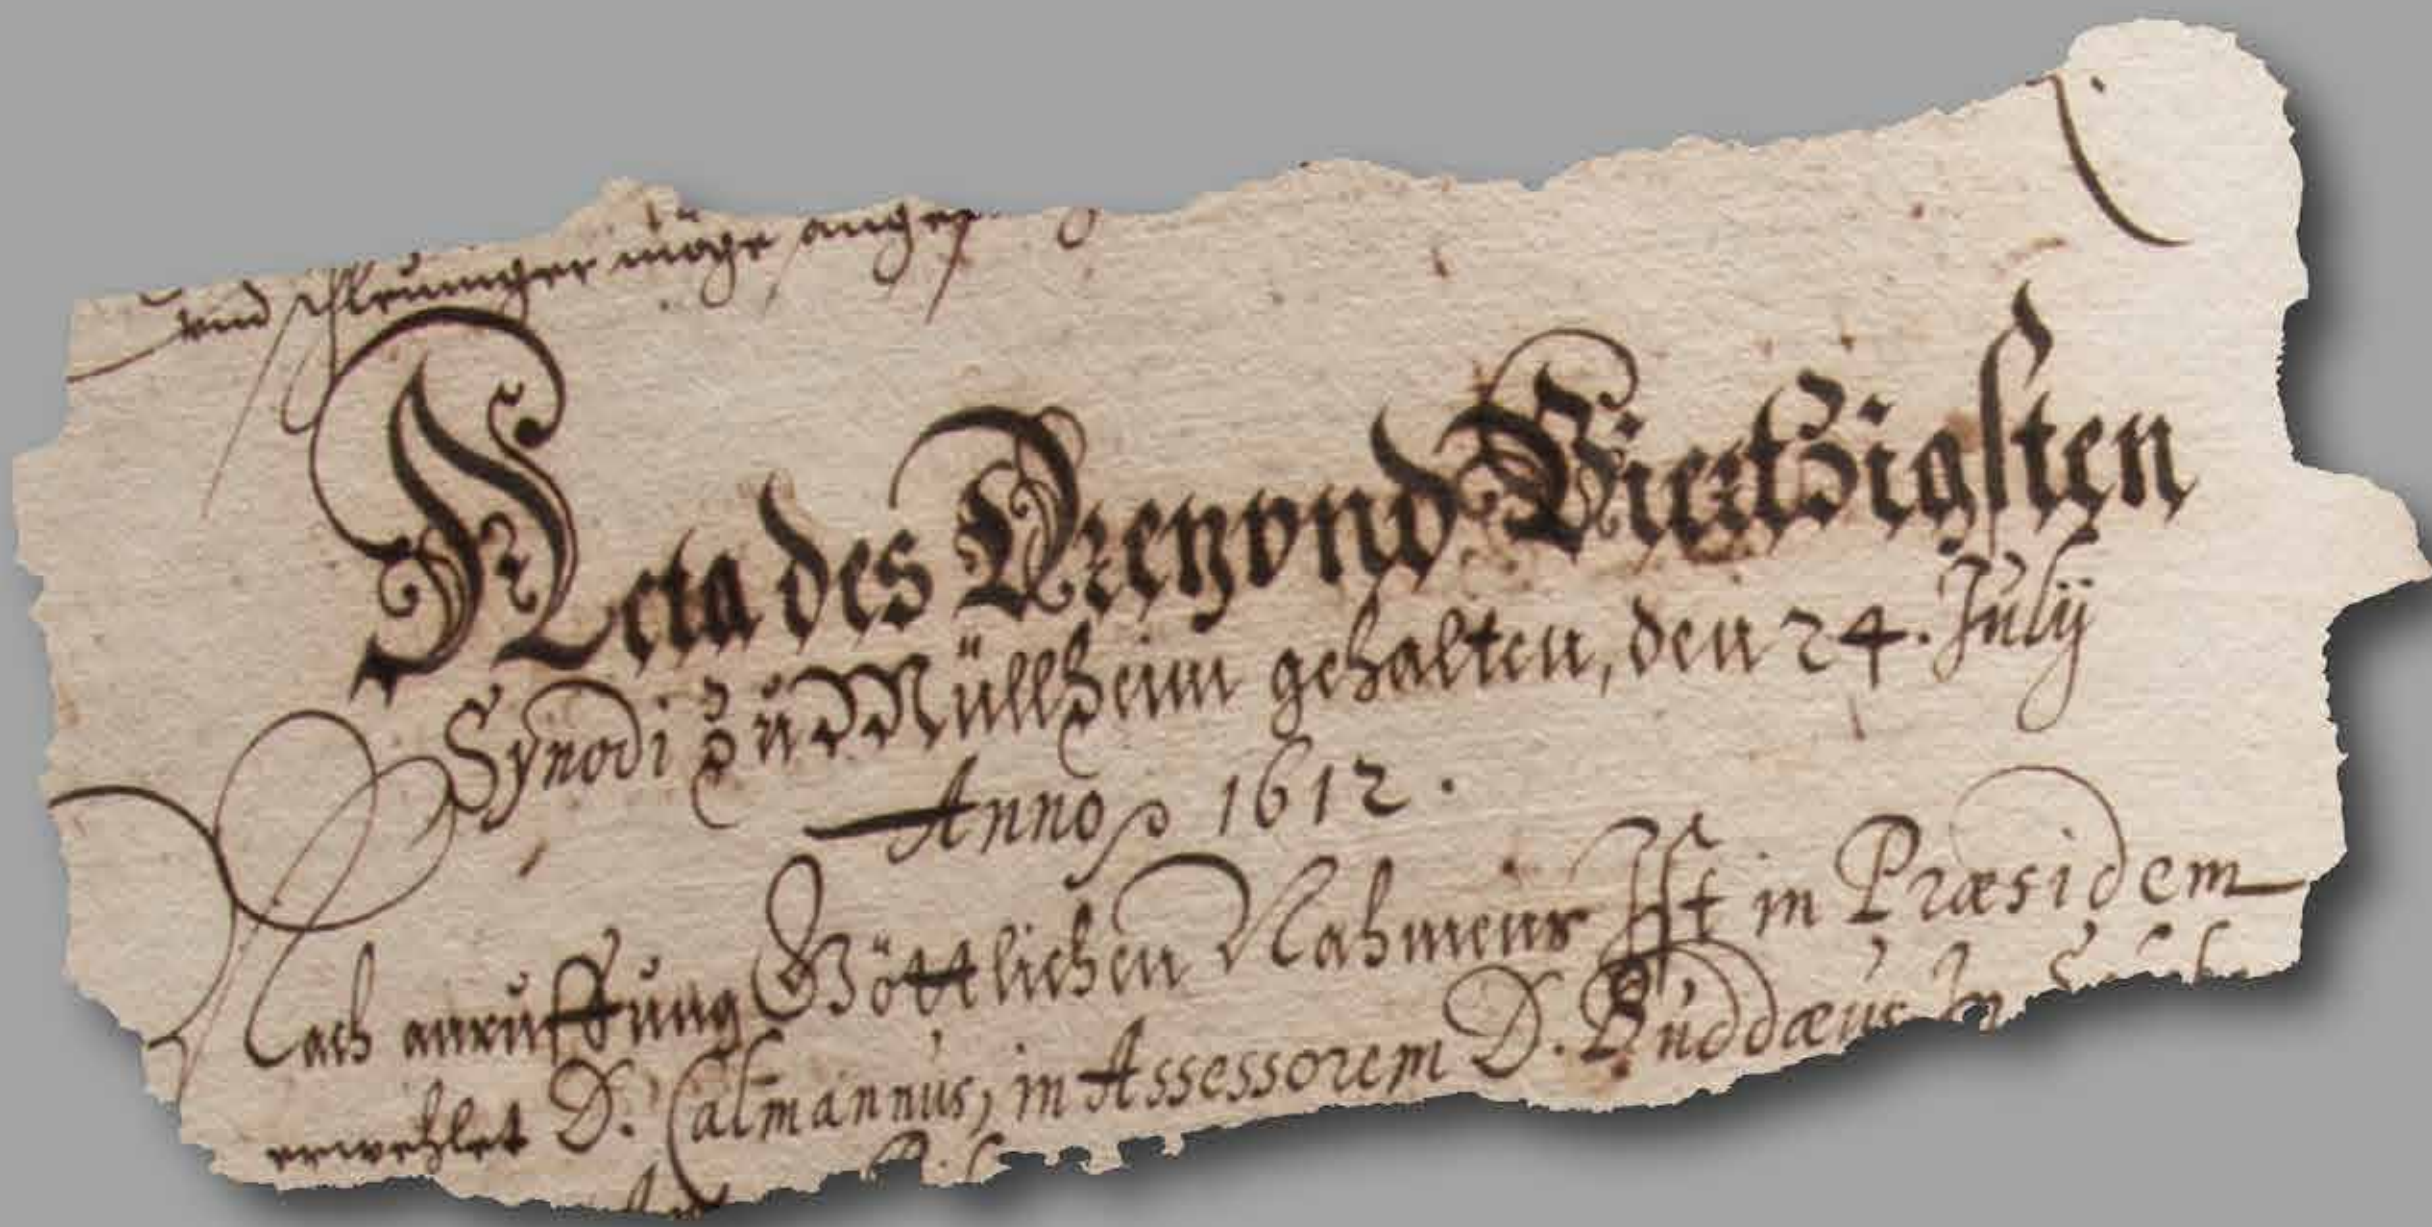 vnd schleuniger möge
Acta des Dreyvnd Viertzigsten
Synodi zu Müllheim gehalten, den 24. Julij
Anno 1612.
Nach anruffung Göttlichen Nahmens Ist in Præsidem
erwehlet D. Calmannus, in Assessorem D. Buddæus